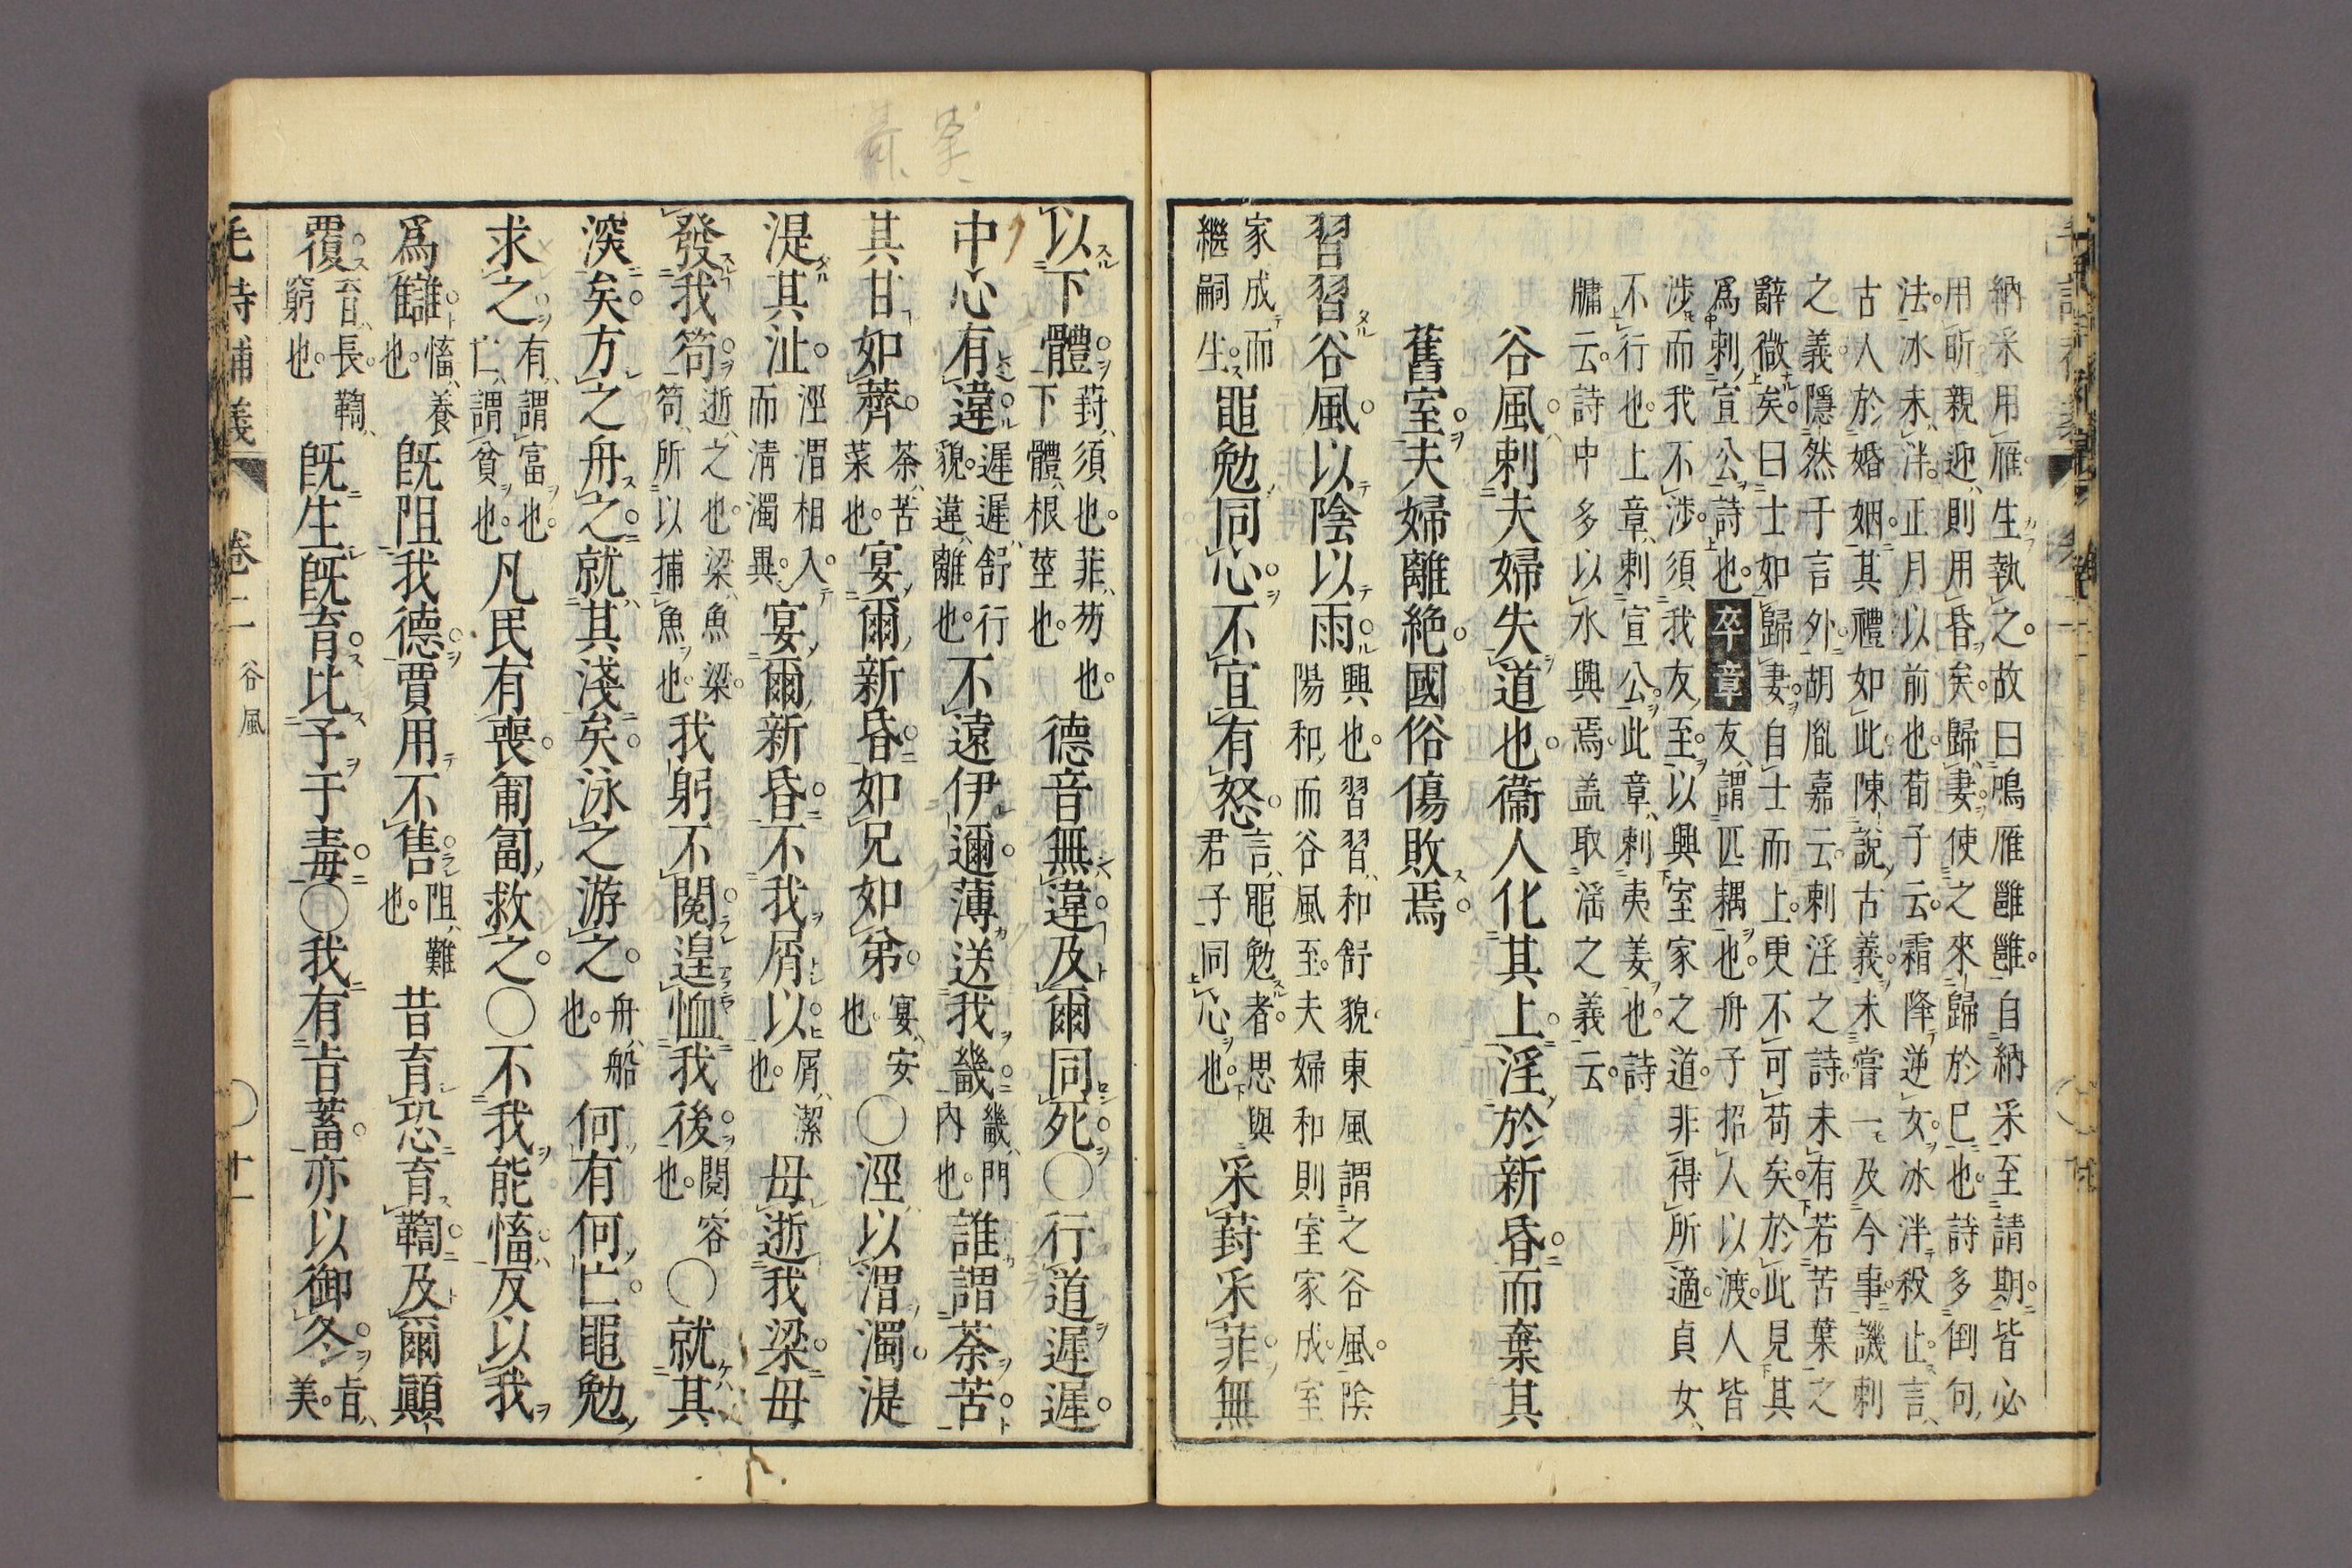 納采用雁生執之故曰鳴雁雝雝自納采至請期皆必
用昕親迎則用昏矣歸妻使之來歸於己也詩多倒句
法冰未泮正月以前也荀子云霜降逆女冰泮殺止言
古人於婚姻其禮如此陳說古義未嘗一及今事譏刺
之義隱然于言外胡胤嘉云刺淫之詩未有若苦葉之
辭微矣曰士如歸妻自士而上更不可苟矣於此見其
爲刺宣公詩也卒章友謂匹耦也舟子招人以渡人皆
涉而我不涉須我友至以興室家之道非得所適貞女
不行也上章刺宣公此章刺夷姜也詩
牗云詩中多以水興焉盖取滛之義云
谷風刺夫婦失道也衞人化其上淫於新昏而棄其
舊室夫婦離絶國俗傷敗焉
習習谷風以陰以雨
興也習習和舒貌東風謂之谷風陰
陽和而谷風至夫婦和則室家成室
家成而
繼嗣生
黽勉同心不宜有怒
言黽勉者思與
君子同心也
采葑采菲無
以下體
葑須也菲芴也
下體根莖也
德音無違及爾同死○行道遲遲
中心有違
遲遲舒行
貌違離也
不遠伊邇薄送我畿
畿門
內也
誰謂荼苦
其甘如薺
荼苦
菜也
宴爾新昏如兄如弟
宴安
也
○涇以渭濁湜
湜其沚
涇渭相入
而淸濁異
宴爾新昏不我屑以
屑潔
也
毋逝我梁毋
發我笱
逝之也梁魚梁
笱所以捕魚也
我躬不閱遑恤我後
閱容
也
○就其
深矣方之舟之就其淺矣泳之游之
舟船
也
何有何亡黽勉
求之
有謂富也
亡謂貧也
凡民有喪匍匐救之○不我能慉反以我
爲讎
慉養
也
旣阻我德賈用不售
阻難
也
昔育恐育鞫及爾顚
覆
育長鞫
窮也
旣生旣育比予于毒○我有旨蓄亦以御冬
旨
美
毛詩補義 卷二 谷風 ○十一